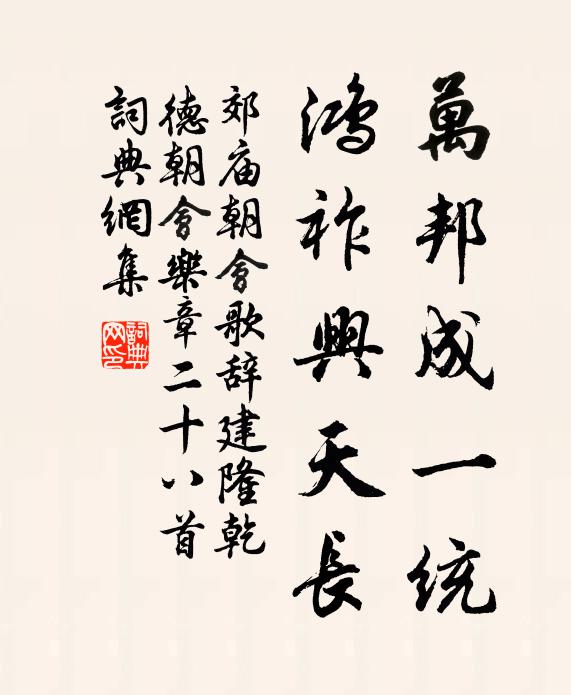 萬邦成一統
鴻祚興天長
郊庙朝會歌辞建隆乾
德朝會樂章二十八首
詞典網集
詞典网印